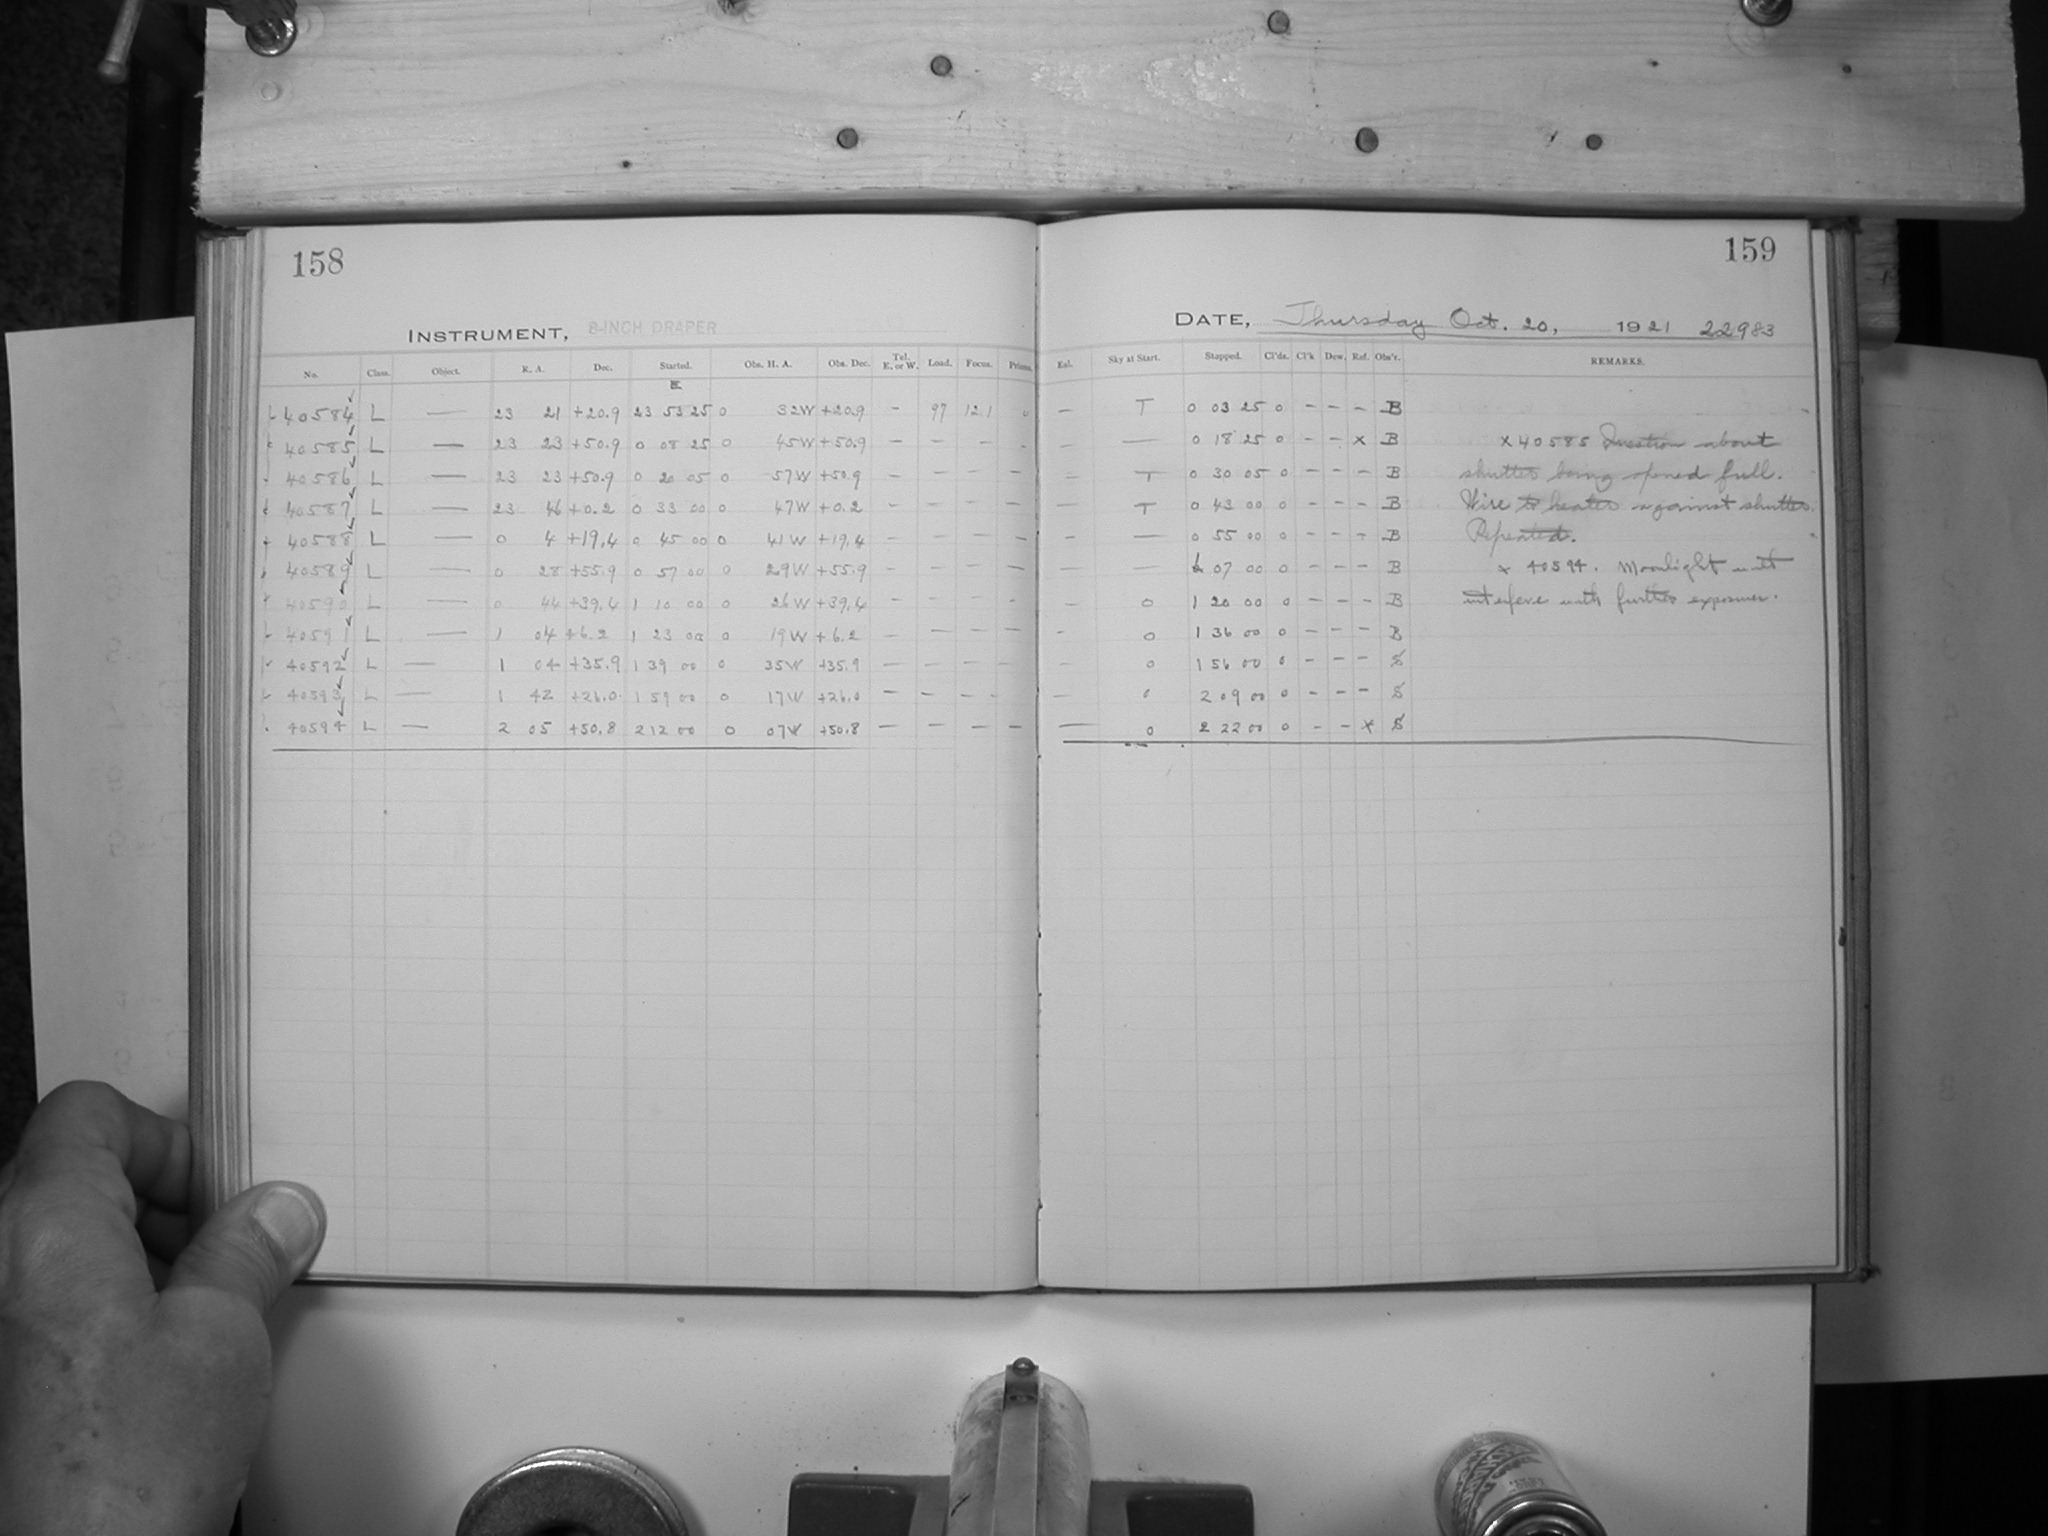 158
159
INSTRUMENT, 8-INCH DRAPER
DATE, Thursday Oct. 20, 1921 22983
No. Class. Object. R. A. Dec. Started. Obs. H. A. Obs. Dec. Tel. E. or W. Load. Focus. Prisms. Eal. Sky at Start. Stopped. Cl'ds. Cl'k Dew. Ref. Obs'r. REMARKS.
E
40584 L — 23 21 +20.9 23 53 25 0 32W +20.9 - 97 12.1 0 — T 0 03 25 0 - - - B
40585 L — 23 23 +50.9 0 08 25 0 45W +50.9 - - - - — — 0 18 25 0 - - x B x 40585 Question about
40586 L — 23 23 +50.9 0 20 05 0 57W +50.9 - - - - - T 0 30 05 0 - - - B shutter being opened full.
40587 L — 23 46 +0.2 0 33 00 0 47W +0.2 - - - - - T 0 43 00 0 - - - B Wire to heater against shutter.
40588 L — 0 4 +19.4 0 45 00 0 41W +19.4 - - - - - — 0 55 00 0 - - - B Repeated.
40589 L — 0 28 +55.9 0 57 00 0 29W +55.9 - - - - - — 1 07 00 0 - - - B x 40594. Moonlight will
40590 L — 0 44 +39.4 1 10 00 0 26W +39.4 - - - - - 0 1 20 00 0 - - - B interfere with further exposures.
40591 L — 1 04 +6.2 1 23 00 0 19W +6.2 - - - - - 0 1 36 00 0 - - - B
40592 L — 1 04 +35.9 1 39 00 0 35W +35.9 - - - - - 0 1 56 00 0 - - - S
40593 L — 1 42 +26.0 1 59 00 0 17W +26.0 - - - - - 0 2 09 00 0 - - - S
40594 L — 2 05 +50.8 2 12 00 0 07W +50.8 - - - - — 0 2 22 00 0 - - x S